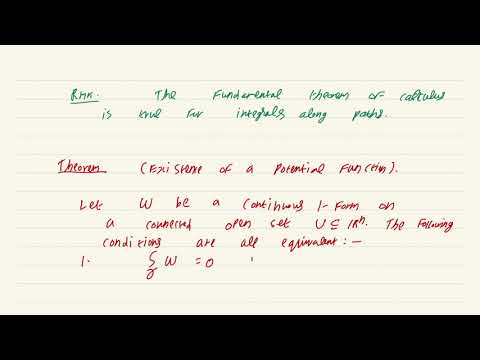 RMK. The Fundamental theorem of calculus
is true for integrals along paths.
Theorem (Existence of a Potential Function).
Let W be a continuous 1-Form on
a connected open set U ⊆ ℝⁿ. The Following
conditions are all equivalent :-
1. ∫_γ W = 0